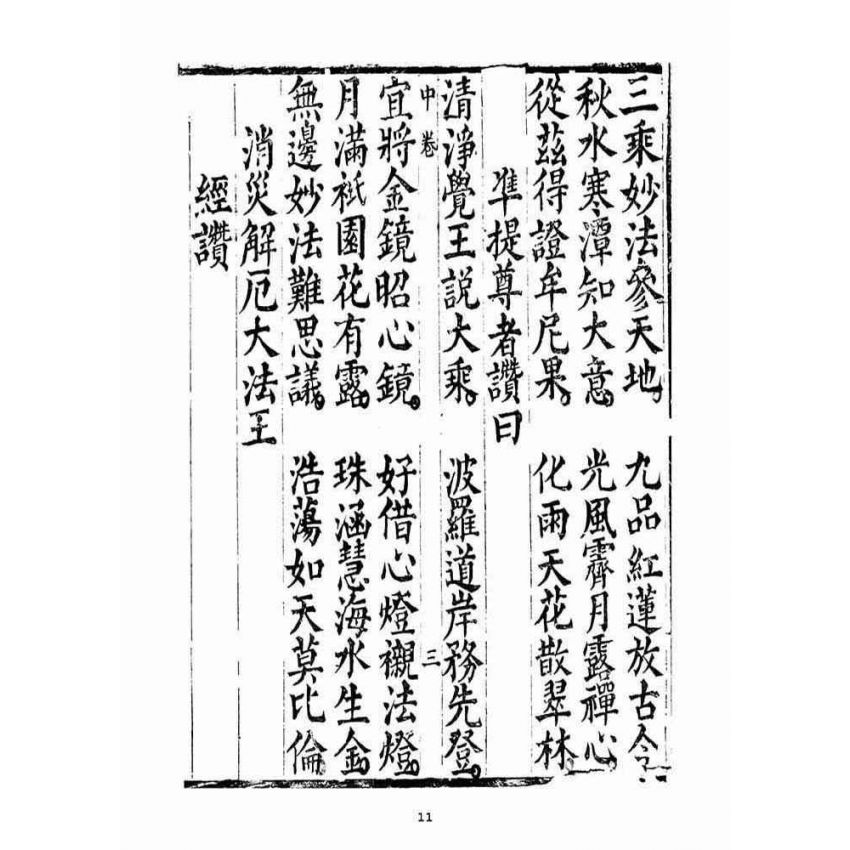 三乘妙法參天地。 九品紅蓮放古今
秋水寒潭知大意。 光風霽月露禪心。
從茲得證牟尼果。 化雨天花散翠林
準提尊者讚曰
清淨覺王說大乘。 波羅道岸務先登。
中卷 三
宜將金鏡昭心鏡。 好借心燈襯法燈。
月滿祇園花有露。 珠涵慧海水生金。
無邊妙法難思議。 浩蕩如天莫比倫
消災解厄大法王
經讚
11